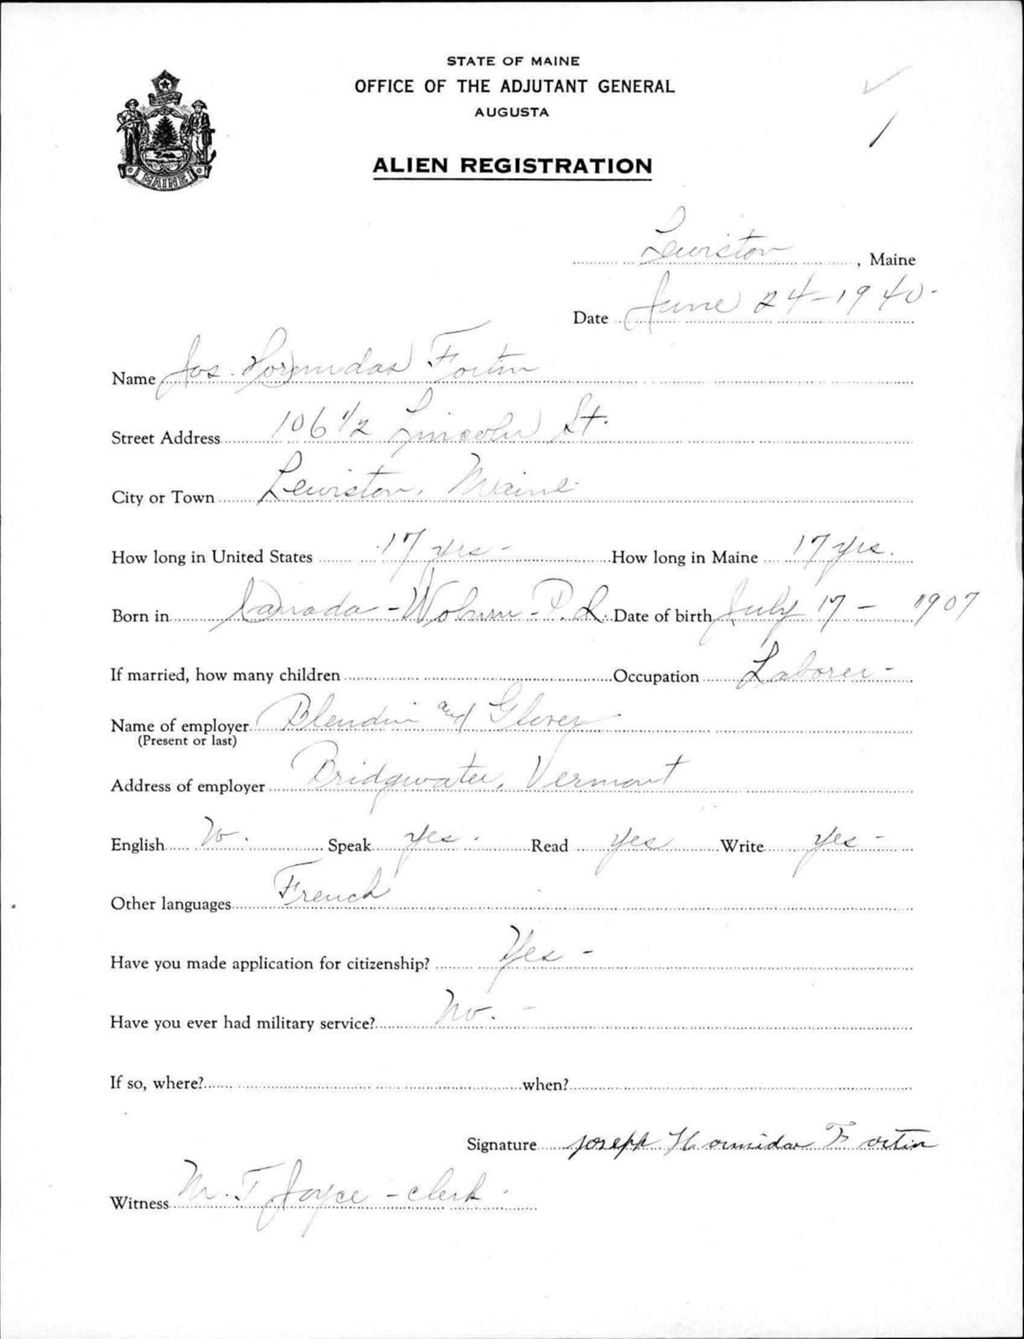 STATE OF MAINE
OFFICE OF THE ADJUTANT GENERAL
AUGUSTA
ALIEN REGISTRATION
MAINE
Lewiston, Maine
Date June 24-1940-
Name Jos. Hormidas Fortin
Street Address 106 1/2 Lincoln St.
City or Town Lewiston, Maine
How long in United States 17 yrs - How long in Maine 17 yrs.
Born in Canada - Woburn - P.Q. Date of birth July 17 - 1907
If married, how many children Occupation Laborer -
Name of employer and
(Present or last)
Address of employer Bridgwater, Vermont
English No. Speak yes. Read yes Write yes -
Other languages French
Have you made application for citizenship? Yes -
Have you ever had military service? No. -
If so, where? when?
Signature Joseph Hormidas Fortin
Witness M. T. Joyce - clerk.